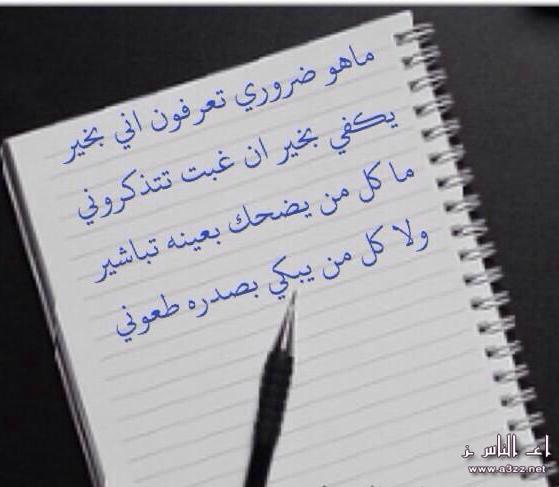 ماهو ضروري تعرفون اني بخير
يكفي بخير ان غبت تتذكروني
ما كل من يضحك بعينه تباشير
ولا كل من يبكي بصدره طعوني
www.a3zz.net